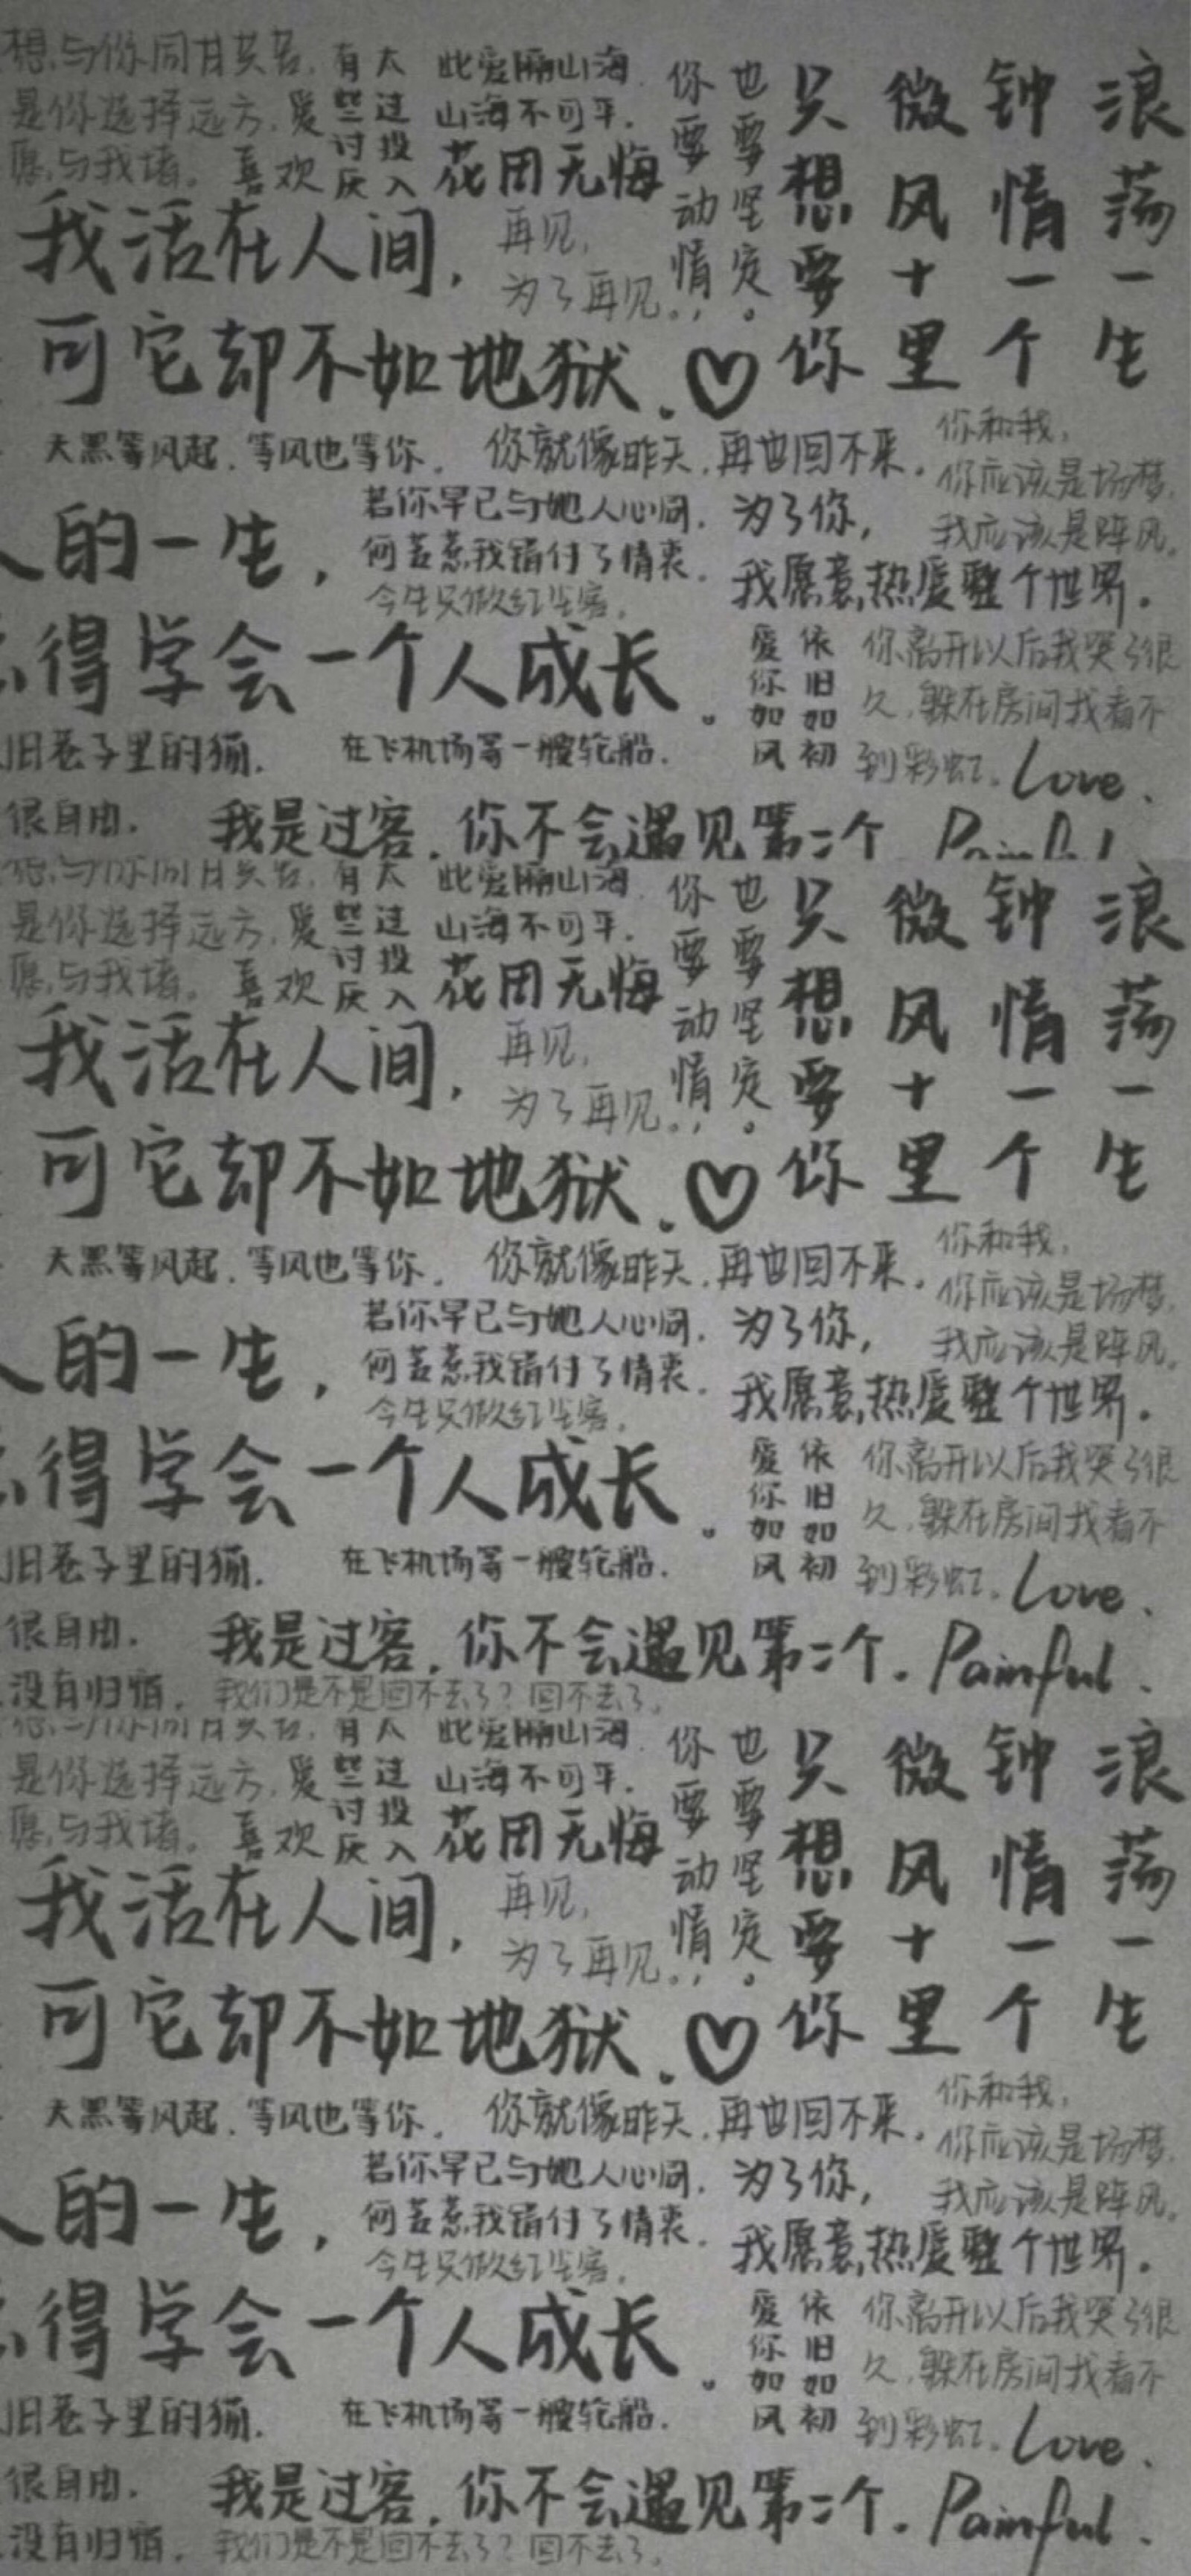 想与你同甘共苦,
是你选择远方,爱
愿与我堵。喜欢
有些讨厌
太过投入
此爱隔山海,
山海不可平.
花用无悔
你要动情,
也要坚定。
只想要你
微风十里
钟情一个
浪荡一生
我活在人间,
再见,
为了再见。
可它却不如地狱.♡
天黑等风起,等风也等你.
你就像昨天,再也回不来.
你和我,
你应该是场梦,
我应该是阵风。
人的一生,
若你早已与她人心同,
何苦惹我错付了情衷.
今生只做红尘客.
为了你,
我愿意热爱整个世界.
得学会一个人成长。
爱你如风
依旧如初
你离开以后我哭了很
久,躲在房间找看不
到彩虹。Love.
旧巷子里的猫.
在飞机场等一艘轮船.
很自由.
我是过客,你不会遇见第二个.
Painful
有太
此爱隔山海
是你选择远方,爱
愿与我堵。喜欢
些讨厌
过投入
山海不可平.
花用无悔
你要动情,
也要坚定。
只想要你
微风十里
钟情一个
浪荡一生
我活在人间,
再见,
为了再见。
可它却不如地狱.♡
天黑等风起,等风也等你.
你就像昨天,再也回不来.
你和我,
你应该是场梦,
我应该是阵风。
人的一生,
若你早已与她人心同,
何苦惹我错付了情衷.
今生只做红尘客.
为了你,
我愿意热爱整个世界.
得学会一个人成长。
爱你如风
依旧如初
你离开以后我哭了很
久,躲在房间找看不
到彩虹。Love.
旧巷子里的猫.
在飞机场等一艘轮船.
很自由.
我是过客,你不会遇见第二个.
Painful.
没有归宿.
我们是不是回不去了?回不去了.
有太
此爱隔山海
是你选择远方,爱
愿与我堵。喜欢
些讨厌
过投入
山海不可平.
花用无悔
你要动情,
也要坚定。
只想要你
微风十里
钟情一个
浪荡一生
我活在人间,
再见,
为了再见。
可它却不如地狱.♡
天黑等风起,等风也等你.
你就像昨天,再也回不来.
你和我,
你应该是场梦,
我应该是阵风。
人的一生,
若你早已与她人心同,
何苦惹我错付了情衷.
今生只做红尘客.
为了你,
我愿意热爱整个世界.
得学会一个人成长。
爱你如风
依旧如初
你离开以后我哭了很
久,躲在房间找看不
到彩虹。Love.
旧巷子里的猫.
在飞机场等一艘轮船.
很自由.
我是过客,你不会遇见第二个.
Painful.
没有归宿.
我们是不是回不去了?回不去了.